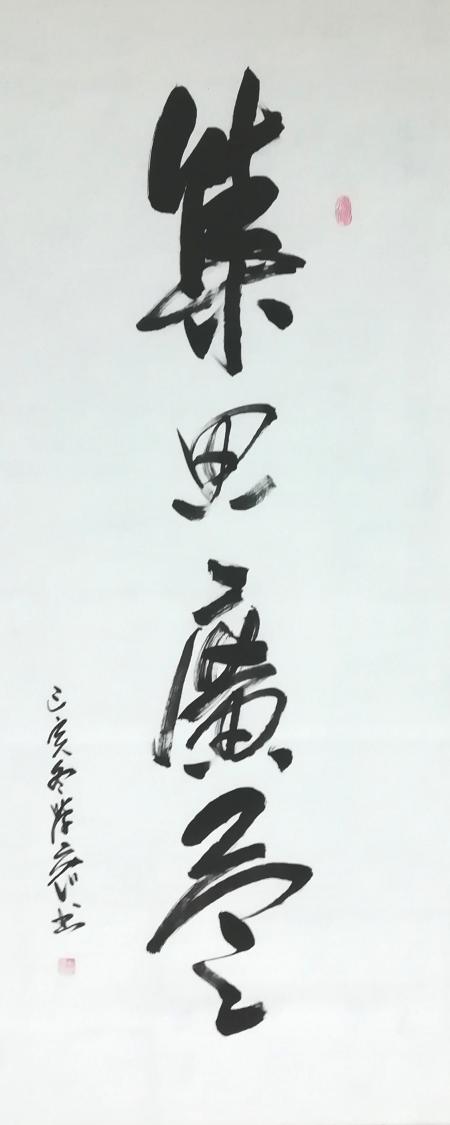 集思廣益
己亥冬
書